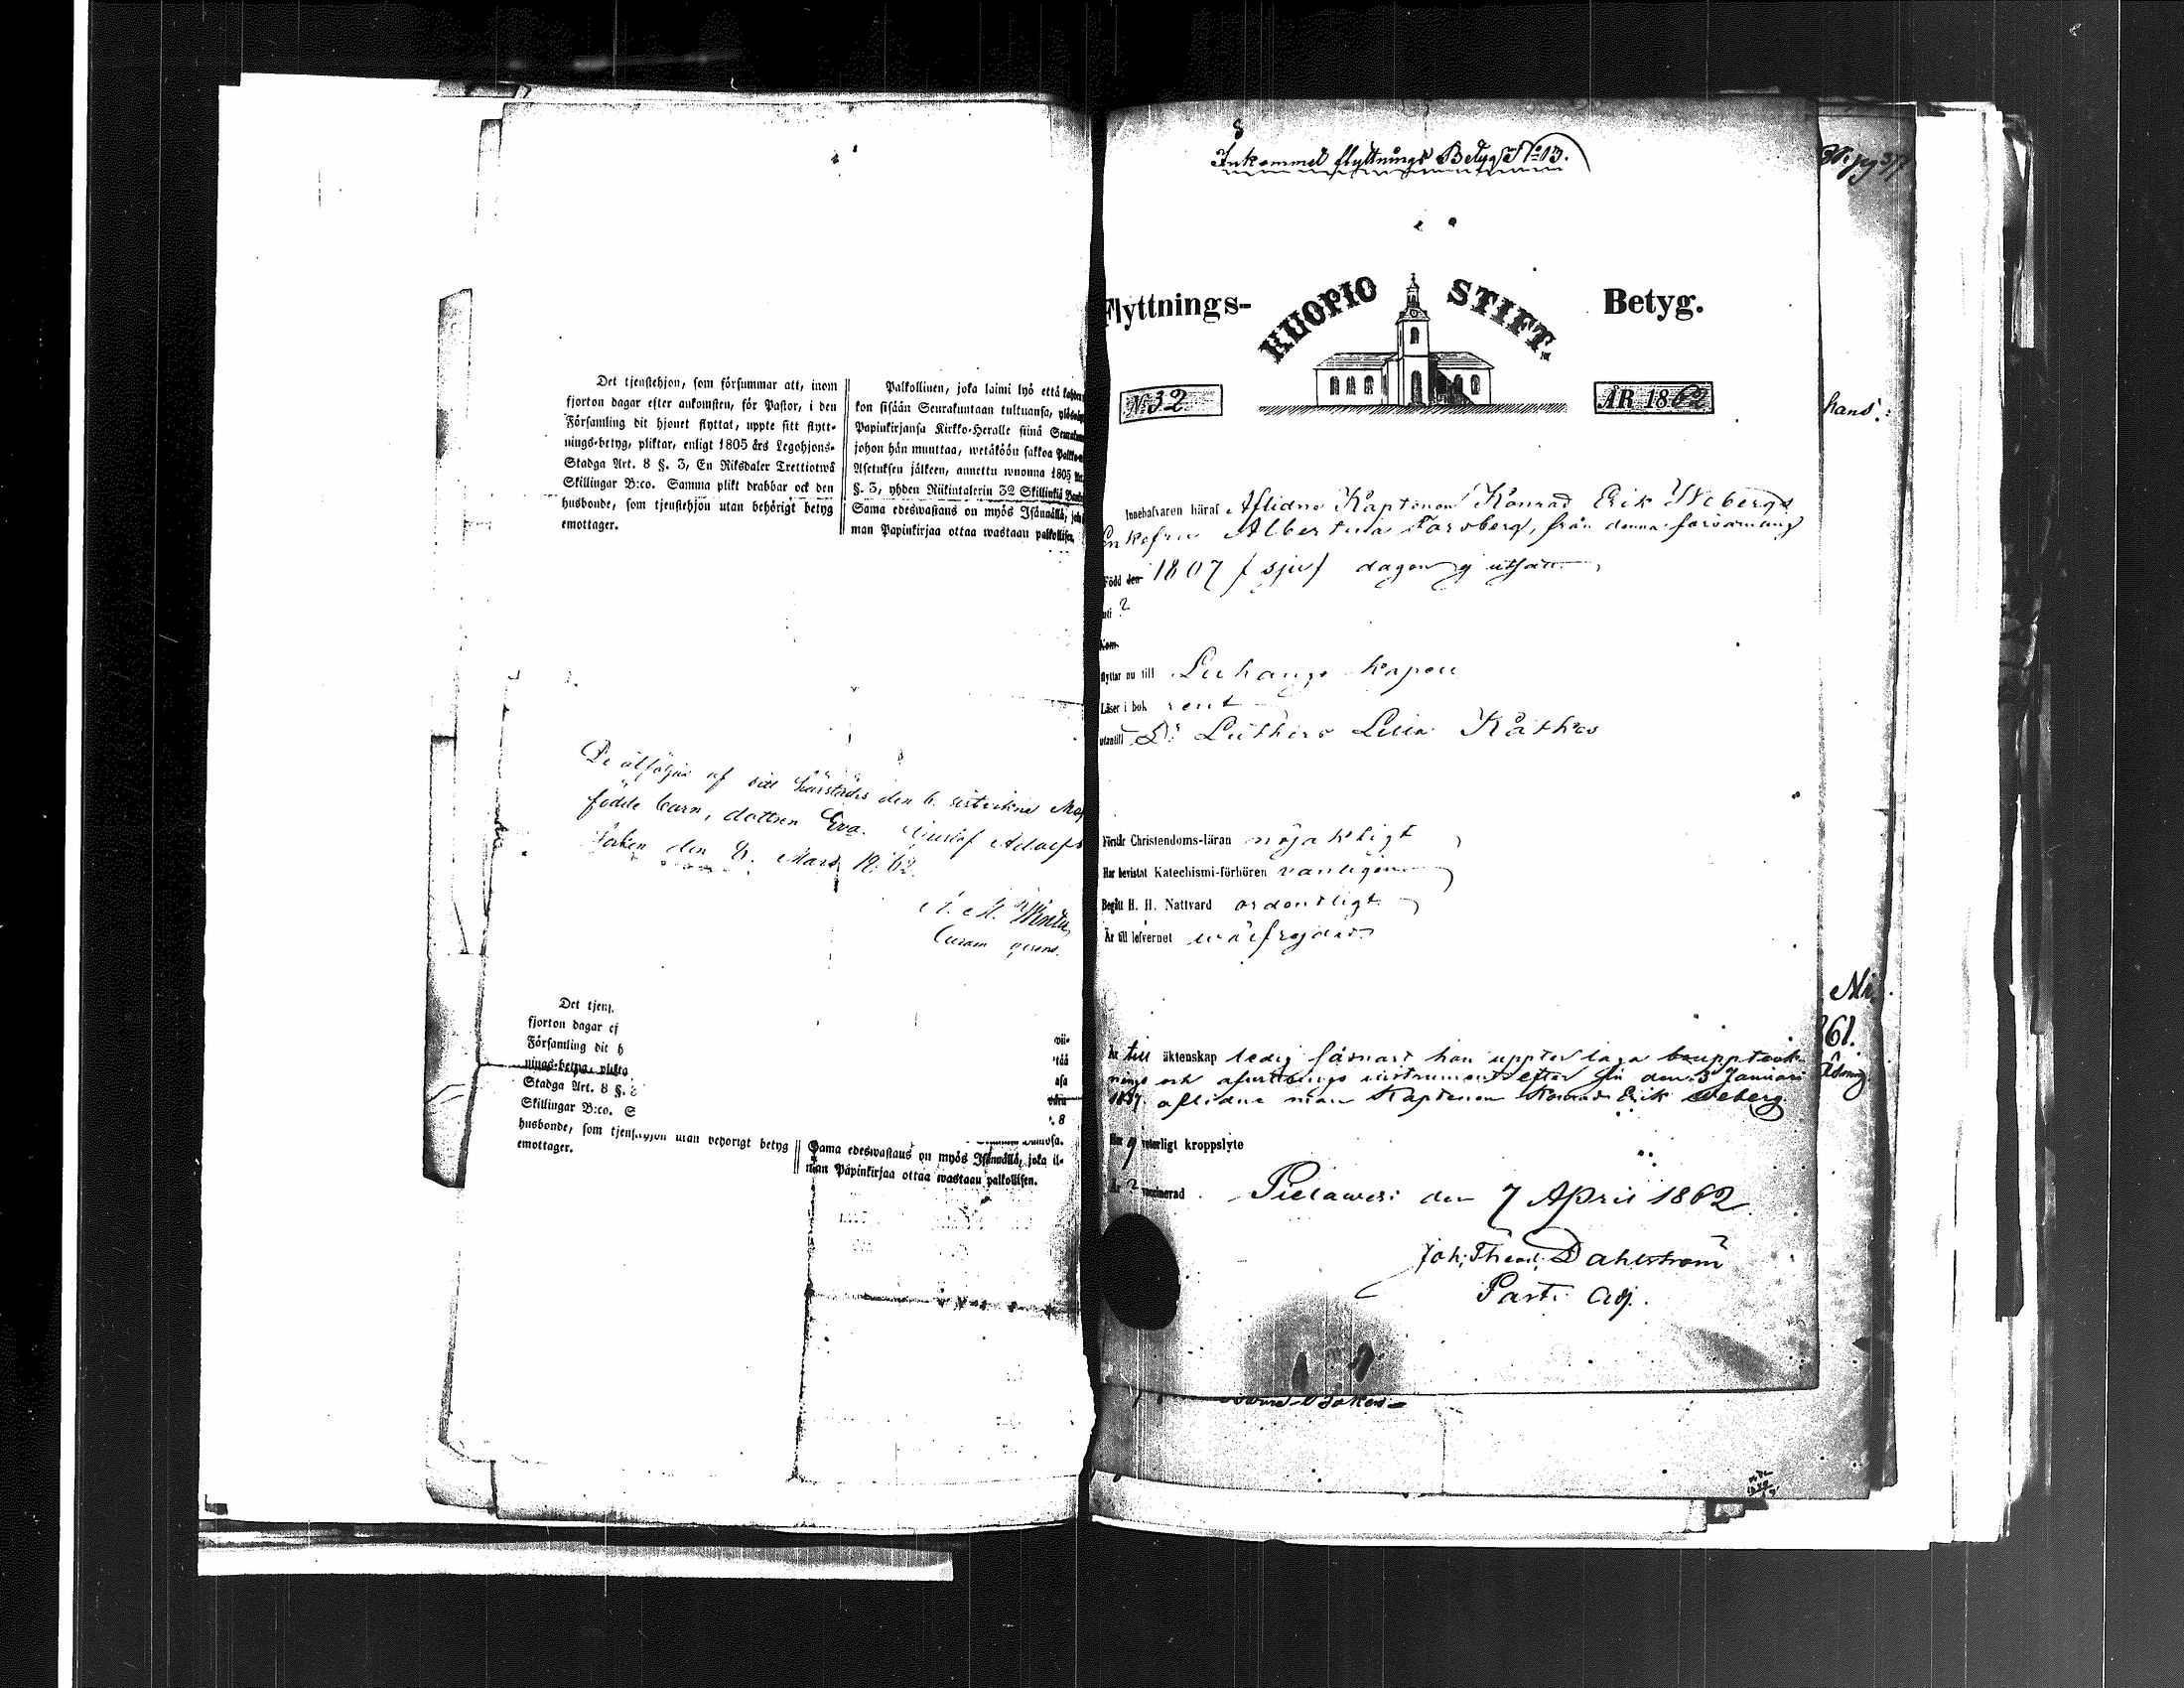 Det tjenstehjon, som försummar att, inom
fjorton dagar efter ankomsten, för Pastor, i den
Församling dit hjonet flyttat, uppte sitt flytt-
nings-betyg, pliktar, enligt 1805 års Legohjons-
Stadga Art. 8 §. 3, En Riksdaler Trettiotwå
Skillingar B:co. Samma plikt drabbar ock den
husbonde, som tjenstehjon utan behörigt betyg
emottager.
Palkollinen, joka laimi lyö että
kon sisään Seurakuntaan tultuansa,
Papinkirjansa Kirkko-Heralle siinä
johon hän muuttaa, wetäköön sakkoa
Asetuksen jälkeen, annettu wuonna 1805
§. 3, yhden Riikintalerin 32 Skillinkiä
Sama edeswastaus on myös Isännällä,
man Papinkirjaa ottaa wastaan
den 6. sistvikne
födde barn, dottren Eva. Gustaf Adolfs
den 8. Mars 1862.
Curam gerens.
Det tjenst
fjorton dagar ef
Församling dit h
nings-betyg, plikta
Stadga Art. 8 §.
Skillingar B:co. S
husbonde, som utan behörigt betyg
emottager.
Sama edeswastaus on myös Isännällä, joka il-
man Papinkirjaa ottaa wastaan palkollisen.
Inkommet flyttnings Betyg No 13.
Flyttnings- KUOPIO STIFT. Betyg.
No 32 ÅR 1862
Innehafvaren häraf Aflidne Kaptenen Konrad Erik Webergs
Enkefru Albertina Forsberg, från denna församling
Född den 1807 / sju / dagen ej utsatt
uti ?
Kom
flyttar nu till Luhango kapell
Läser i bok rent
utantill Dr Luthers Lilla Kathes
Förstår Christendoms-läran nöjaktigt
Har bevistat Katechismi-förhören vanligen
Begått H. H. Nattvard ordentligt
Är till lefvernet wälfrejdad
Är till äktenskap ledig såsnart hon uppter laga bouppteck-
nings och afvittrings instrument efter sin den 3 Januari
aflidne man Kaptenen Konrad Erik Weberg
Har ej veterligt kroppslyte
Är ? vaccinerad Pielawesi den 7 April 1862
Joh. Theod. Dahlström
Past. Adj.
hans
61.